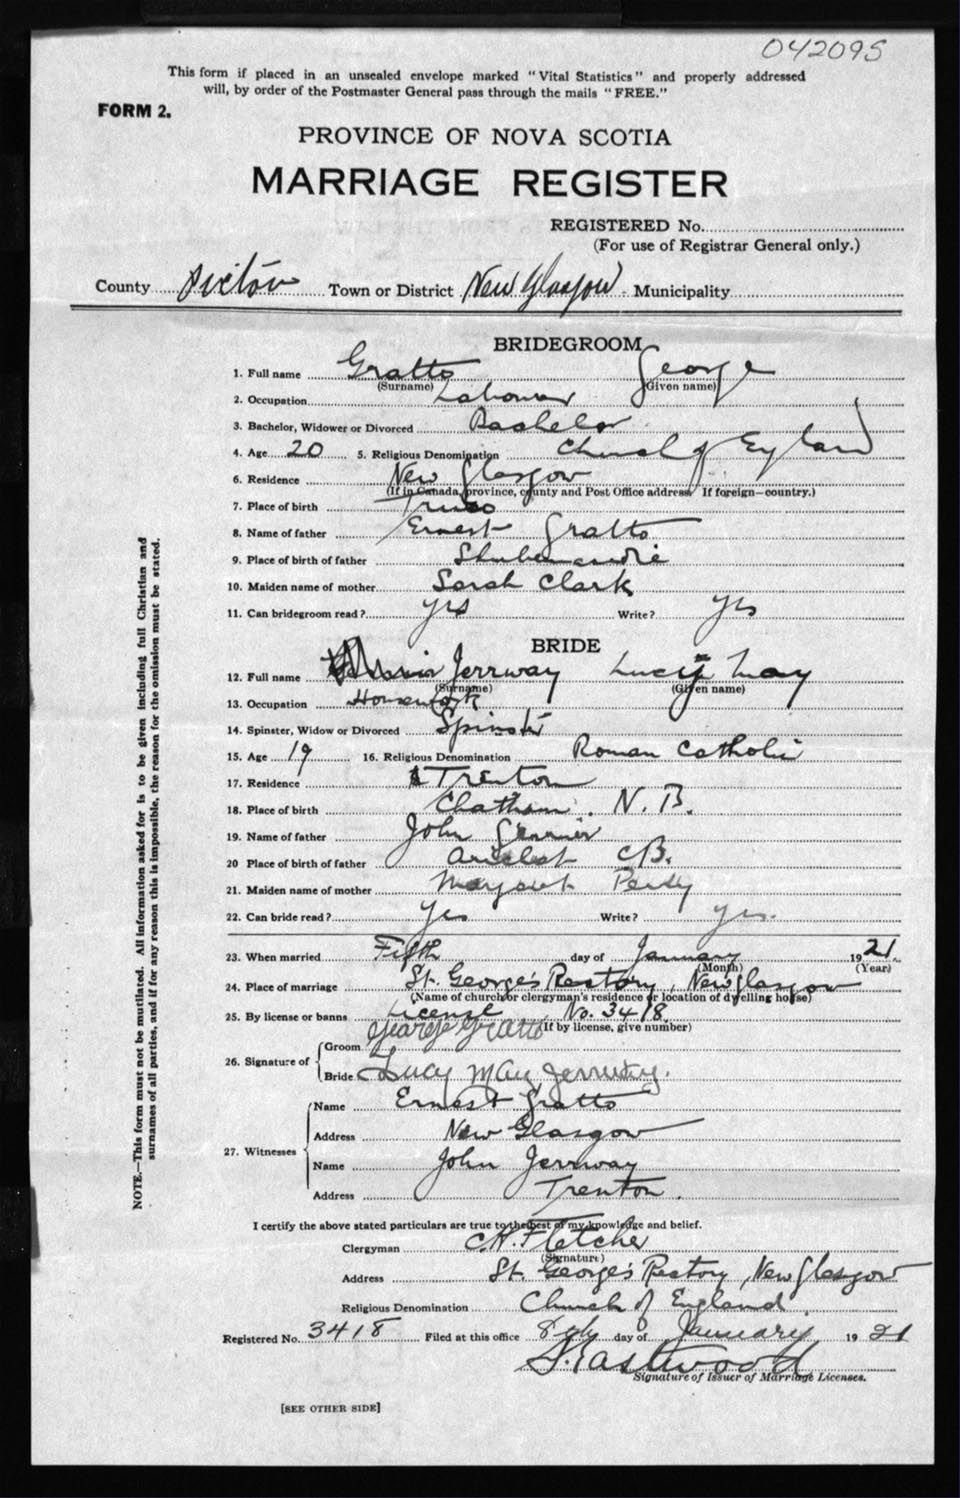 042095
This form if placed in an unsealed envelope marked "Vital Statistics" and properly addressed
will, by order of the Postmaster General pass through the mails "FREE."
FORM 2.
PROVINCE OF NOVA SCOTIA
MARRIAGE REGISTER
REGISTERED No.
(For use of Registrar General only.)
County Pictou Town or District New Glasgow Municipality
BRIDEGROOM
1. Full name Gratto George
(Surname) (Given name)
2. Occupation Labourer
3. Bachelor, Widower or Divorced Bachelor
4. Age 20 5. Religious Denomination Church of England
6. Residence New Glasgow
(If in Canada, province, county and Post Office address. If foreign—country.)
7. Place of birth Truro
8. Name of father Ernest Gratto
9. Place of birth of father Shubenacadie
10. Maiden name of mother Sarah Clark
11. Can bridegroom read? yes Write? yes
BRIDE
12. Full name Jerrway Lucy May
(Surname) (Given name)
13. Occupation Housework
14. Spinster, Widow or Divorced Spinster
15. Age 19 16. Religious Denomination Roman Catholic
17. Residence Trenton
18. Place of birth Chatham. N. B.
19. Name of father John
20 Place of birth of father Arichat C.B.
21. Maiden name of mother Margaret
22. Can bride read? Yes Write? yes.
23. When married Fifth day of January 1921.
(Month) (Year)
24. Place of marriage St. George's Rectory, New Glasgow
(Name of church or clergyman's residence or location of dwelling house)
25. By license or banns License, No. 3418
(If by license, give number)
26. Signature of Groom George Gratto
Bride Lucy May Jerrway.
27. Witnesses
Name Ernest Gratto
Address New Glasgow
Name John Jerrway
Address Trenton.
I certify the above stated particulars are true to the best of my knowledge and belief.
Clergyman C.H. Fletcher
(Signature)
Address St. George's Rectory, New Glasgow
Religious Denomination Church of England
Registered No. 3418 Filed at this office 8th day of January 1921
Eastwood
Signature of Issuer of Marriage Licenses.
[SEE OTHER SIDE]
NOTE.—This form must not be mutilated. All information asked for is to be given including full Christian and
surnames of all parties, and if for any reason this is impossible, the reason for the omission must be stated.